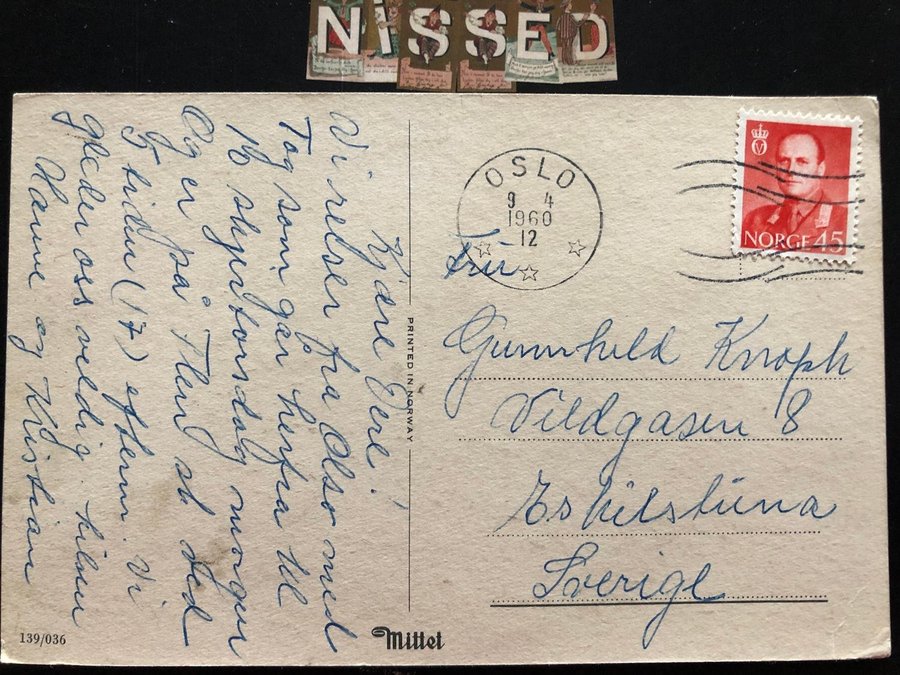 NISSED
OSLO
9 4
1960
12
NORGE 45
Fru
Gunnhild Knoph
Vildgasen 8
Eskilstuna
Sverige
Kjære Dere!
Vi reiser fra Olso med
Tog som går herfra kl
morgen
Og er på Flen st ved
5 tiden (17) efterm. Vi
gleder oss veldig. hilsen
Hanne og Kristian
PRINTED IN NORWAY
139/036
Mittet